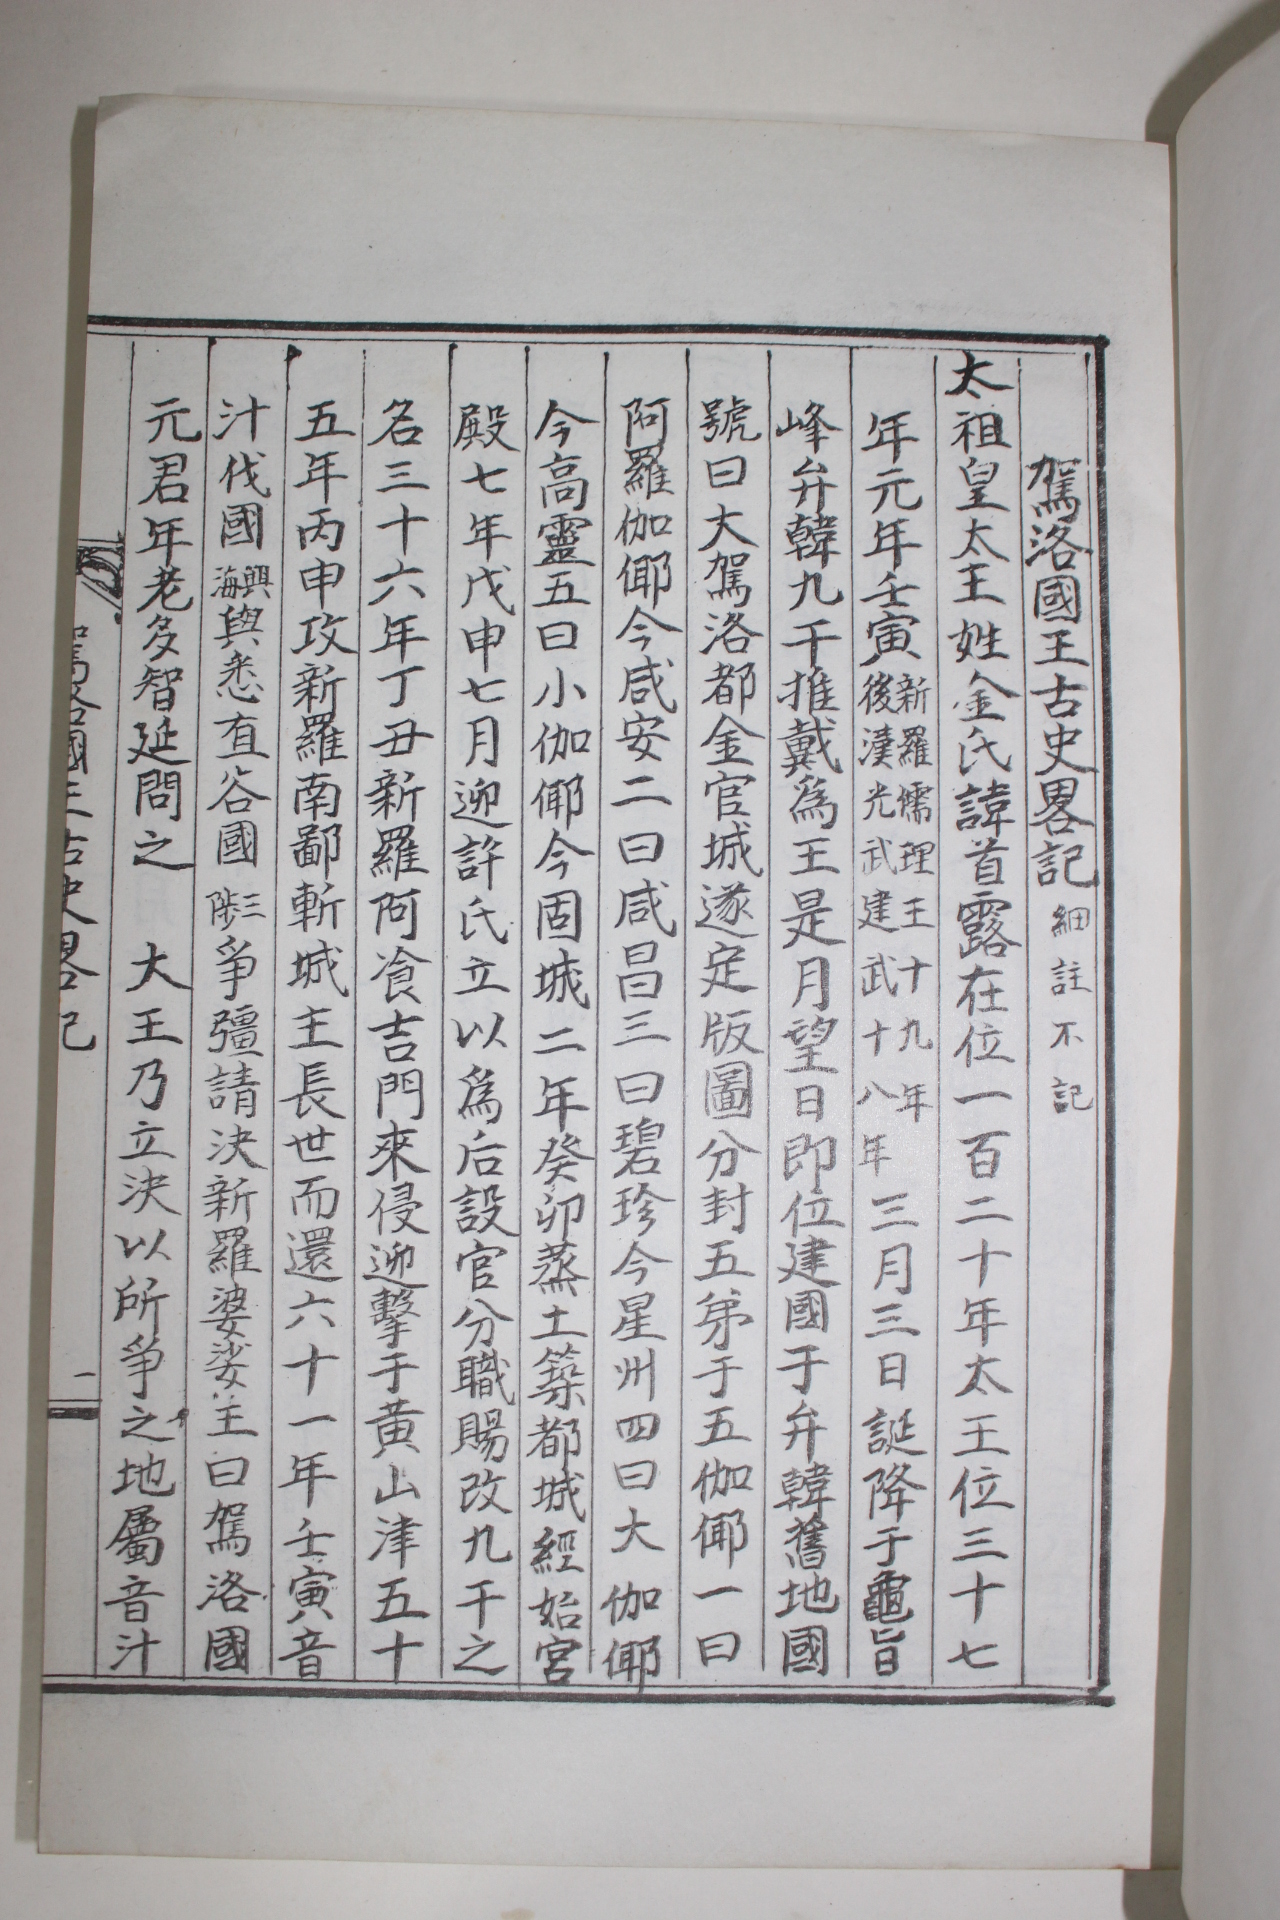 駕洛國王古史畧記 細註不記
太祖皇太王姓金氏諱首露在位一百二十年太王位三十七
年元年壬寅 新羅儒理王十九年 後漢光武建武十八年 三月三日誕降于龜旨
峰弁韓九干推戴爲王是月望日即位建國于弁韓舊地國
號曰大駕洛都金官城遂定版圖分封五弟于五伽倻一曰
阿羅伽倻今咸安二曰咸昌三曰碧珍今星州四曰大伽倻
今高靈五曰小伽倻今固城二年癸卯蒸土築都城經始宮
殿七年戊申七月迎許氏立以爲后設官分職賜改九干之
名三十六年丁丑新羅阿飡吉門來侵迎擊于黃山津五十
五年丙申攻新羅南鄙斬城主長世而還六十一年壬寅音
汁伐國 興海 與悉直谷國 三陟 爭彊請決新羅婆娑主曰駕洛國
元君年老多智延問之 大王乃立決以所爭之地屬音汁
駕洛國王古史畧記 一